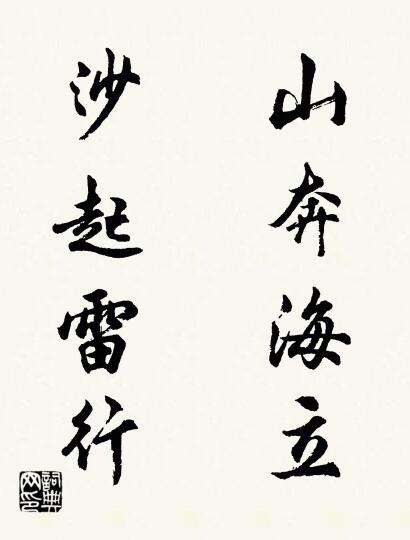 山奔海立
沙起雷行
詞典网印